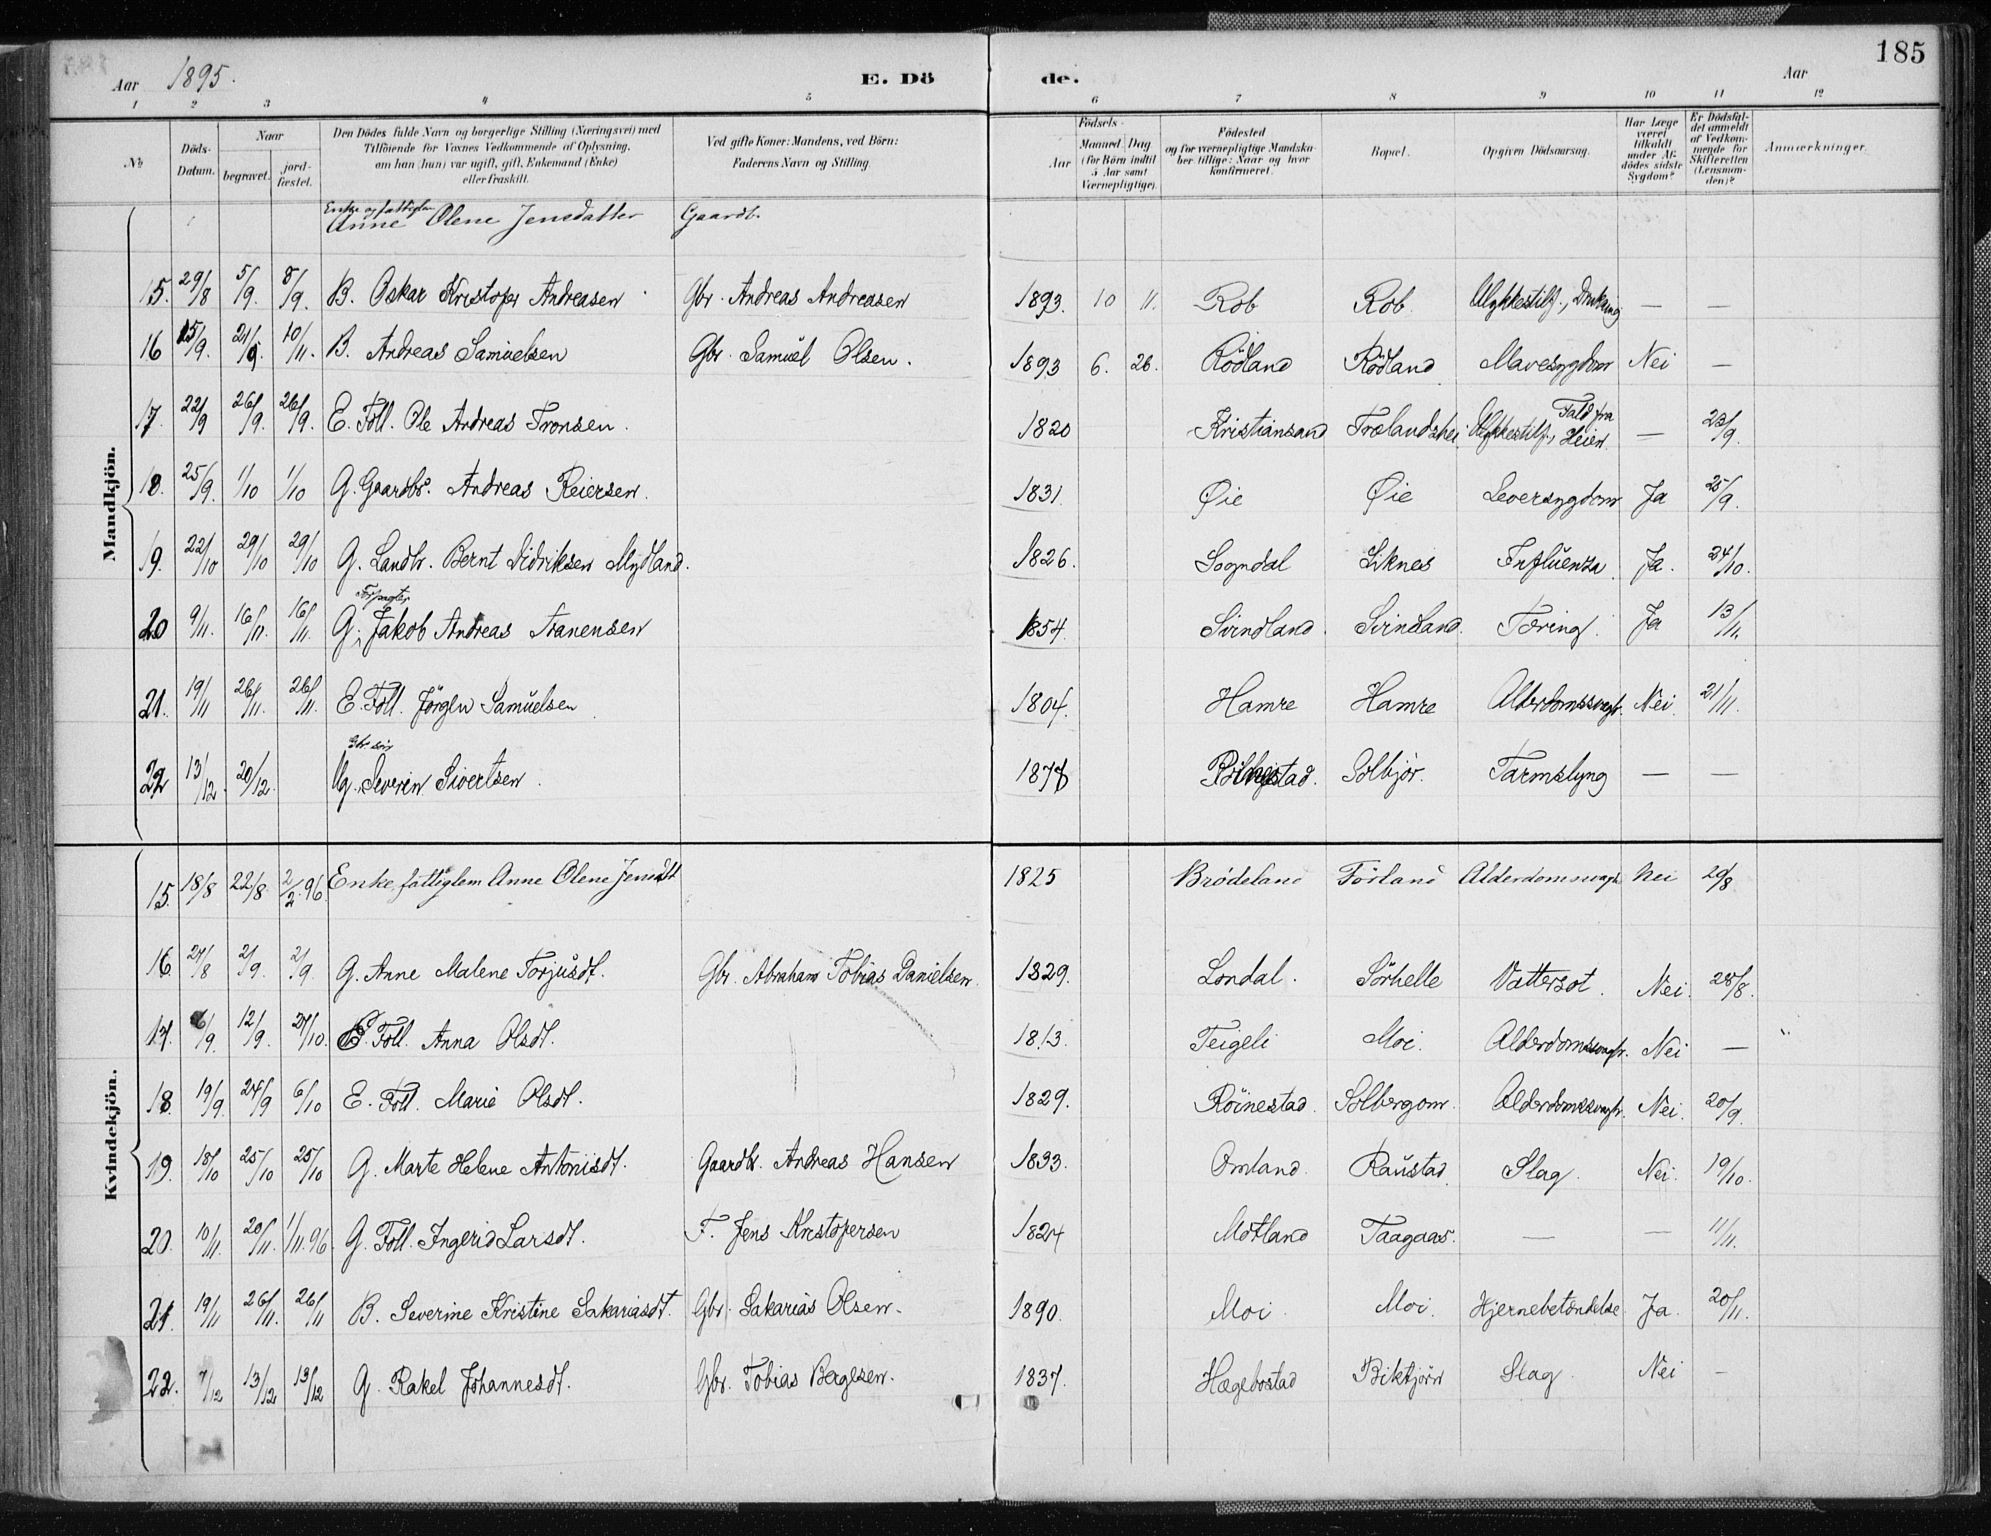 185
Aar 1895. E. Dö de. Aar
1 2 3 4 5 6 7 8 9 10 11 12
No
Döds-Datum.
Naar
begravet.
jord-fæstet.
Den Dödes fulde Navn og borgerlige Stilling (Næringsvei) med
Tilföiende for Voxnes Vedkommende af Oplysning,
om han (hun) var ugift, gift, Enkemand (Enke)
eller fraskilt.
Ved gifte Koner: Mandens, ved Börn:
Faderens Navn og Stilling.
Födsels-
Aar
Maaned Dag
(for Börn indtil
5 Aar samt
Værnepligtige).
Födested
og for værnepligtige Mandska-
ber tillige: Naar og hvor
konfirmeret.
Bopæl.
Opgiven Dödsaarsag.
Har Læge
været
tilkaldt
under Af-
dödes sidste
Sygdom?
Er Dödsfal-
det anmeldt
af Vedkom-
mende for
Skifteretten
(Lensman-
den)?
Anmærkninger.
Enke og fattiglem
Anne Olene Jensdatter Gaardb.
Mandkjön.
15. 29/8 5/9. 8/9. B. Oskar Kristofer Andreasen Gbr. Andreas Andreasen 1893. 10 11. Rob Rob. Ulykkestilf., Drukning — —
16 15/9. 21/9. 10/11. B. Andreas Samuelsen Gbr. Samuel Olsen. 1893 6. 26. Rödland Rödland Mavesygdom Nei —
17. 22/9 26/9. 26/9. E. Föll. Ole Andreas Tronsen. 1820 Kristiansand Trælandshei Ulykkestilf., Fald fra Heien — 23/9.
18. 25/9. 1/10 1/10 G. Gaardbr. Andreas Reiersen. 1831 Øie Øie Leversygdom Ja 25/9.
19. 22/10 29/10 29/10 G. Landh. Bernt Didriksen Mydland. 1826. Sogndal Liknes Influenza Ja. 24/10.
20 9/11. 16/11. 16/11. G. Forpagter Jakob Andreas Tranensen 1854. Svindland. Svindland. Tæring. Ja 13/11.
21. 19/11 26/11. 26/11. E. Föll. Jörgen Samuelsen 1804. Hamre Hamre Alderdomssvagh. Nei. 21/11.
22 13/12 20/12. Ug. Gbr. sön Severin Sivertsen. 1877 Solbjör. Tarmslyng — —
Kvindekjön.
15. 18/8 22/8 2/2.96 Enke fattiglem Anne Olene Jensdt 1825 Brödeland Förland Alderdomssvagh. Nei 20/8
16. 27/8 2/9. 2/9. G. Anne Malene Torjusdt. Gbr. Abraham Tobias Danielsen. 1829. Londal. Sörhelle Vattersot. Nei. 28/8.
17. 6/9. 12/9. 27/10. E. Föll. Anna Olsdt. 1813. Teigeli Moi. Alderdomssvagh. Nei —
18. 19/9. 24/9 6/10 E. Föll. Marie Olsdt. 1829. Röinestad. Solbergom. Alderdomssvagh. Nei. 20/9.
19. 18/10 25/10 25/10 G. Marte Helene Antonisdt. Gaardb. Andreas Hansen 1833. Omland. Raustad. Slag. Nei. 19/10.
20. 10/11. 20/11. 1/11.96 G. Föll. Ingerid Larsdt. F. Jens Kristofersen 1824 Motland Taagaas. — — 11/11.
21. 19/11 26/11. 26/11 B. Severine Kristine Sakariasdt. Gbr. Sakarias Olsen. 1890. Moi Moi. Hjernebetændelse Ja. 20/11.
22. 7/12 13/12 13/12 G. Rakel Johannesdt. Gbr. Tobias Bagesen. 1837. Hægebostad Biktjörn Slag. Nei —